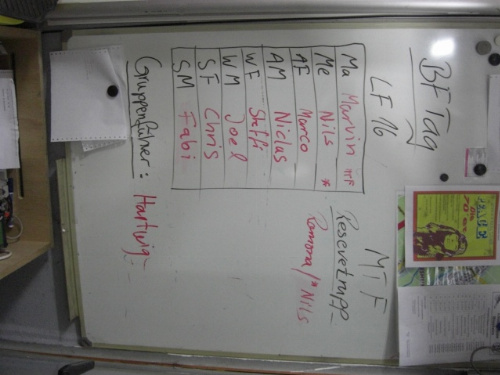 BF Tag
LF 16
MTF
Ma Marvin
Me Nils *
AF Marco
AM Niclas
WF Steffi
WM Joel
SF Chris
SM Fabi
Resevetrupp
Ramona/*Nils
Gruppenführer: Hartwig